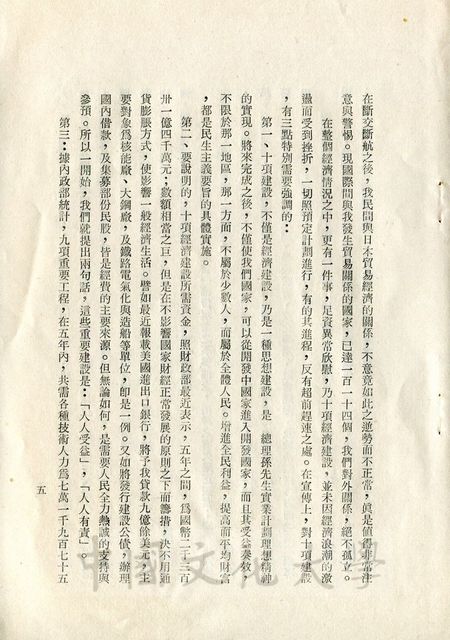 在斷交斷航之後，我民間與日本貿易經濟的關係，不意竟如此之逆勢而不正常，眞是値得非常注
意與警惕。現國際間與我發生貿易關係的國家，已達一百一十四個，我們對外關係，絕不孤立。
在整個經濟情況之中，更有一件事，足資異常欣慰，乃十項經濟建設，並未因經濟浪潮的激
盪而受到挫折，一切照預定計劃進行，有的其進程，反有超前趕速之處。在宣傳上，對十項建設
，有三點特別需要強調的：
第一、十項建設，不僅是經濟建設，乃是一種思想建設，是　總理孫先生實業計劃理想精神
的實現。將來完成之後，不僅使我們國家，可以從開發中國家進入開發國家，而且其受益奏效，
不限於那一地區，那一方面，不屬於少數人，而屬於全體人民。增進全民利益，提高而平均財富
，都是民生主義要旨的具體實施。
第二、要說明的，十項經濟建設所需資金，照財政部最近表示，五年之間，爲國幣二千三百
卅一億四千萬元；數額相當之巨，但是在不影響國家財經正常發展的原則之下而籌措，決不用通
貨膨脹方式，使影響一般經濟生活。譬如最近報載美國進出口銀行，將予我貸款九億餘美元，主
要對象爲核能廠、大鋼廠，及鐵路電氣化與造船等單位，卽是一例。又如將發行建設公債、辦理
國內借款，及集募部份民股，皆是經費的主要來源。但無論如何，是需要人民全力熱誠的支持與
參預。所以一開始，我們就提出兩句話，這些重要建設是：「人人受益」，「人人有責」
第三：據內政部統計，九項重要工程，在五年內，共需各種技術人力爲七萬一千九百七十五
五
中國文化大學